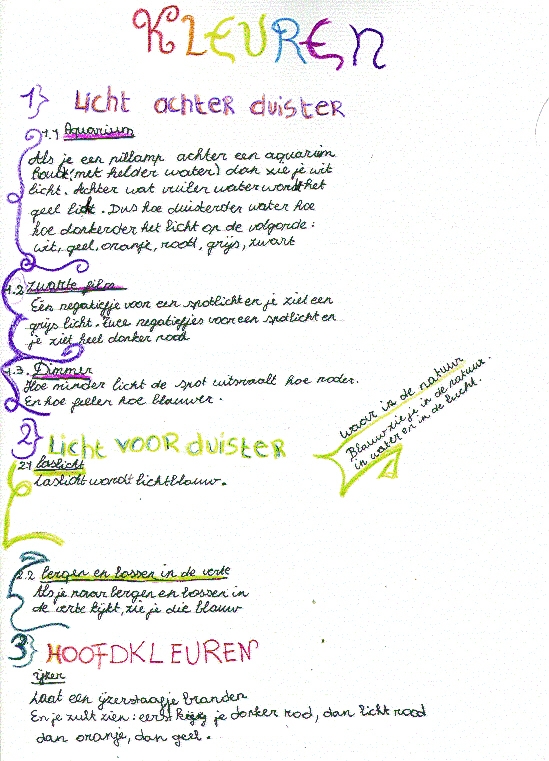 KLEUREN
1} Licht achter duister
1.1 Aquarium
Als je een pillamp achter een aquarium
houdt (met helder water) dan zie je wit
licht. Achter wat vuiler water wordt het
geel licht. Dus hoe duisterder water hoe
hoe donkerder het licht op de volgorde:
wit, geel, oranje, rood, grijs, zwart
1.2 Zwarte film
Eén negatiefje voor een spotlicht en je ziet een
grijs licht. Twee negatiefjes voor een spotlicht en
je ziet heel donker rood
1.3. Dimmer
Hoe minder licht de spot uitstraalt hoe roder.
En hoe feller hoe blauwer.
2} Licht voor duister
waar in de natuur
Blauw zie je in de natuur.
in water en in de lucht.
2.1 laslicht
Laslicht wordt lichtblauw.
2.2 bergen en bossen in de verte
Als je naar bergen en bossen in
de verte kijkt, zie je die blauw
3} HOOFDKLEUREN
ijzer
Laat een ijzerstaafje branden
En je zult zien: eerst krijg je donker rood, dan licht rood
dan oranje, dan geel.